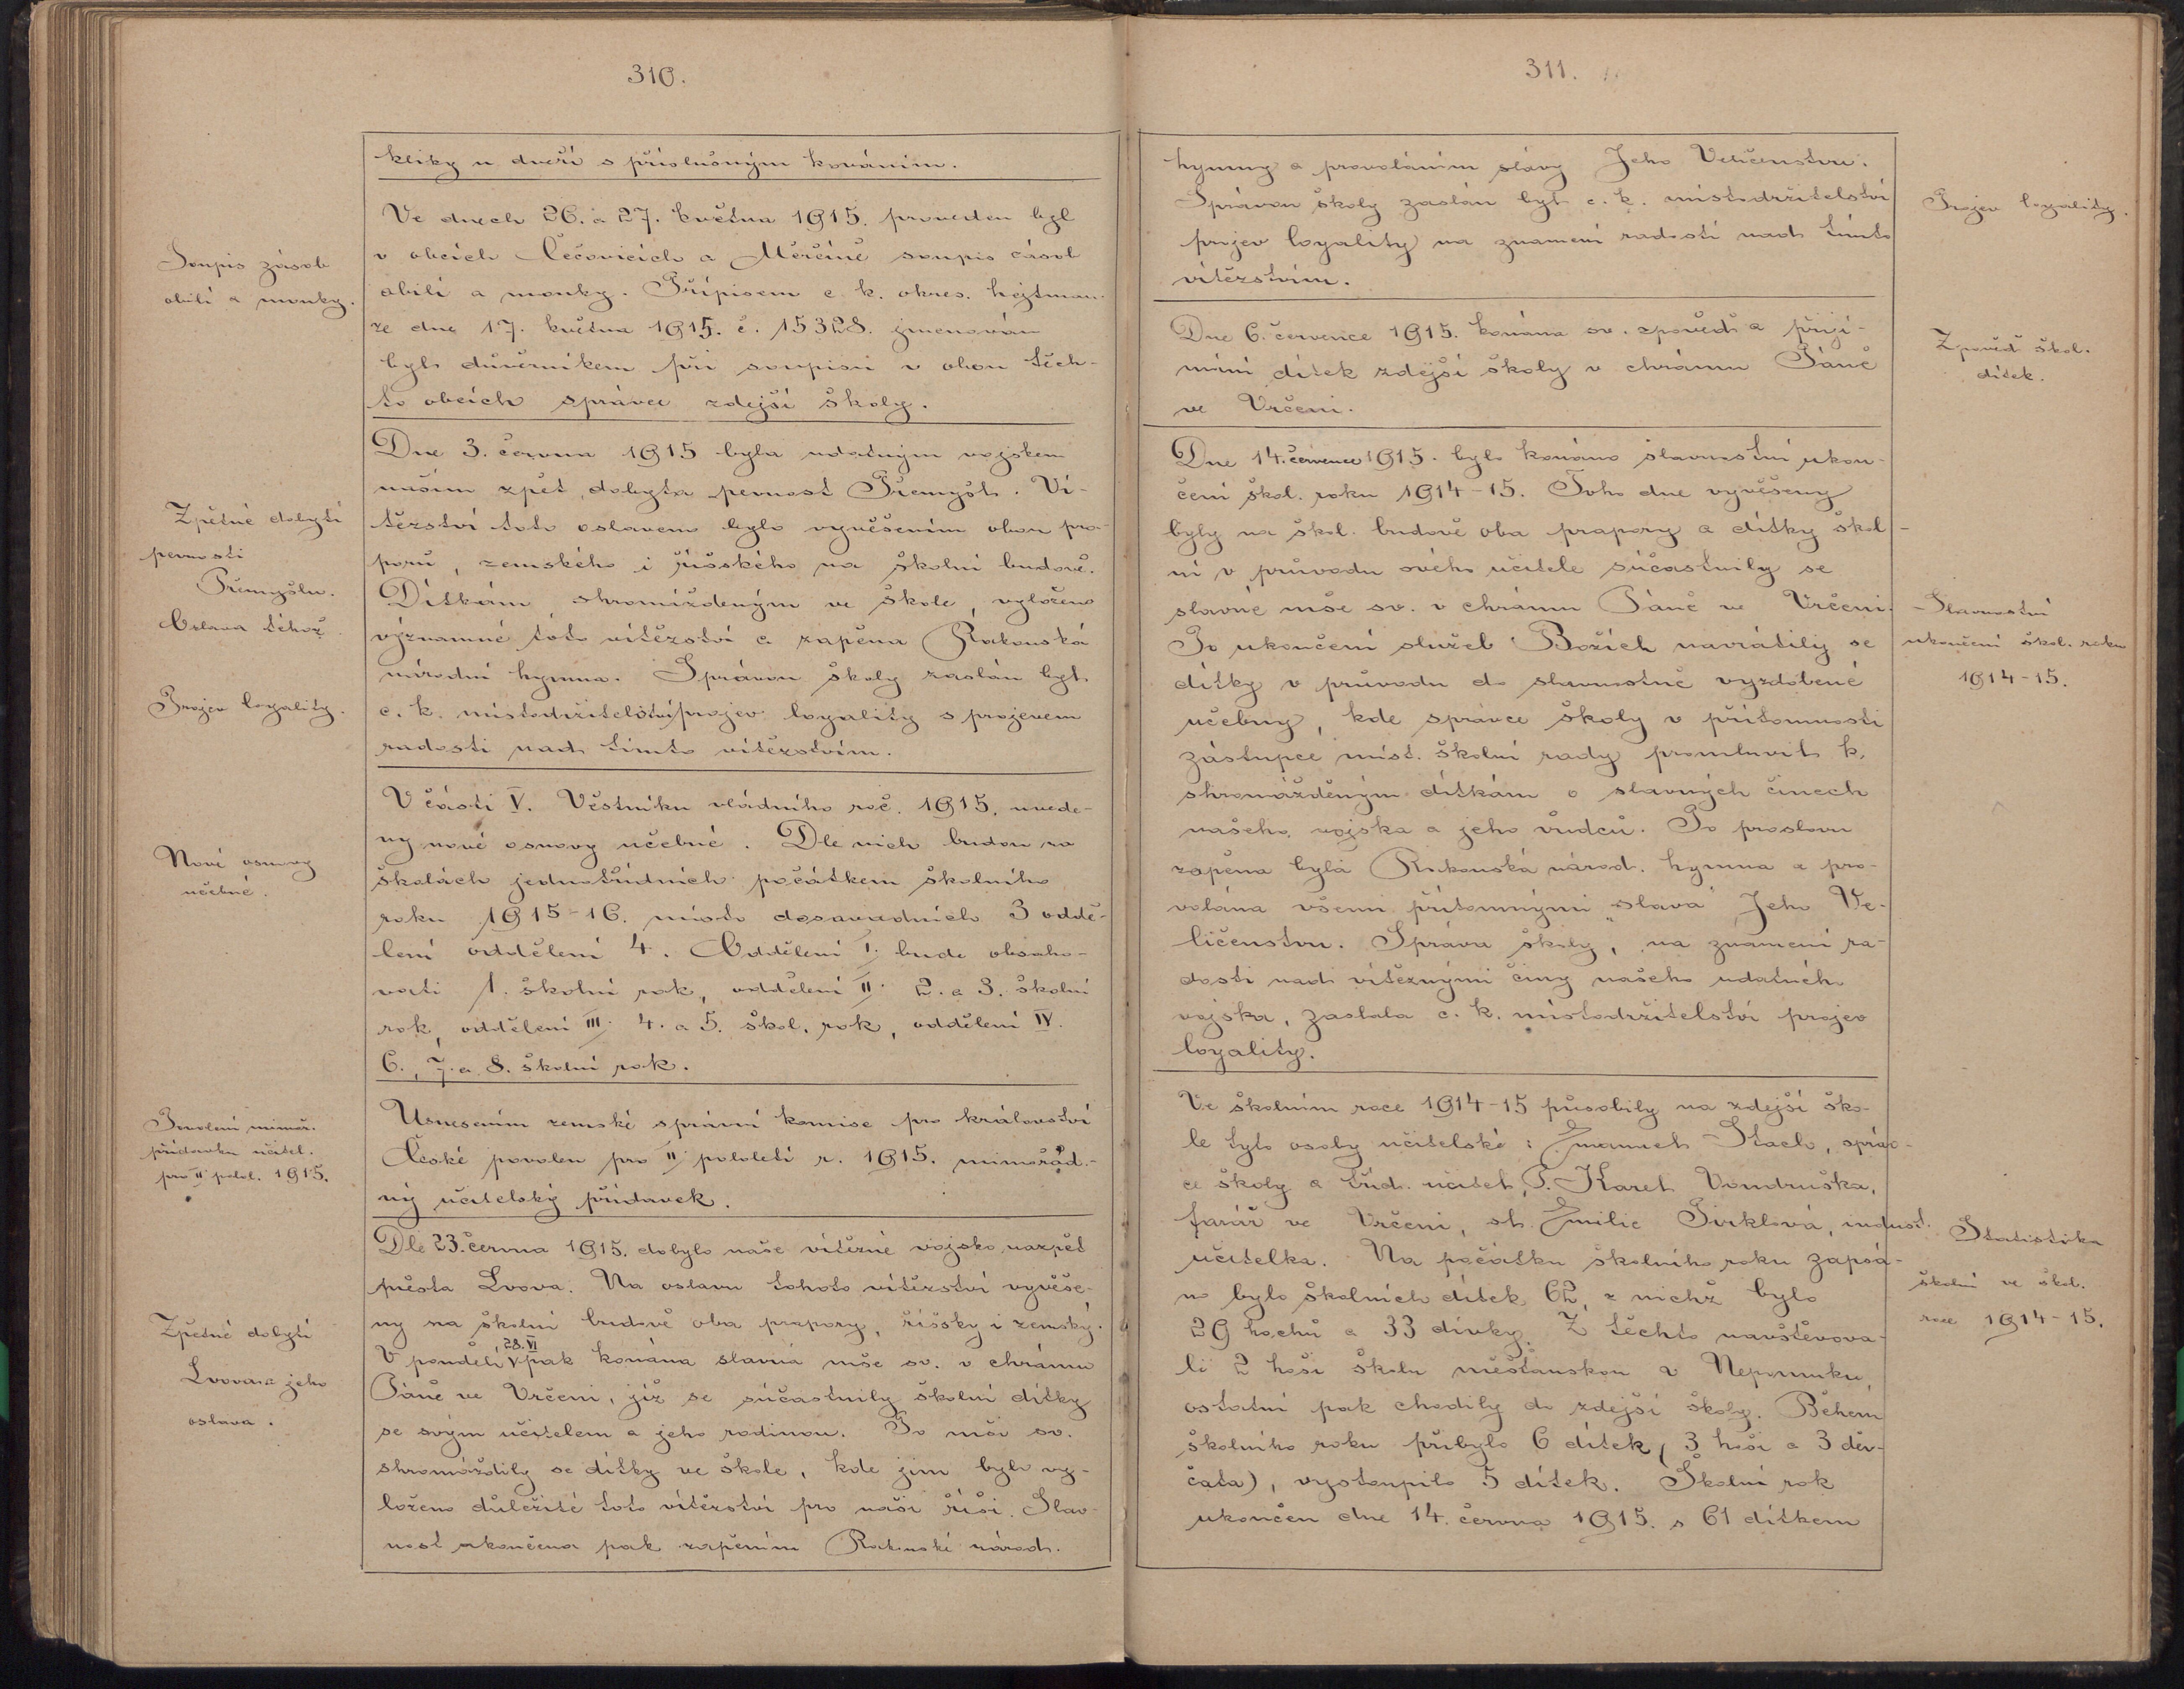 310.
kliky u dveří s příslušným kováním.
Soupis zásob
obilí a mouky.
Ve dnech 26. a 27. května 1915. proveden byl
v obcích Čečovicích a Měrčíně soupis zásob
obilí a mouky. Přípisem c. k. okres. hejtman.
ze dne 17. května 1915. č. 15328. jmenován
byl důvěrníkem při soupisu v obou těch-
to obcích správce zdejší školy.
Zpětné dobytí
pevnosti
Přemyšlu.
Oslava téhož.
Projev loyality.
Dne 3. června 1915 byla udatným vojskem
naším zpět dobyta pevnost Přemyšl. Ví-
tězství toto oslaveno bylo vyvěšením obou pra-
porů, zemského i říšského na školní budově.
Dítkám, shromážděným ve škole, vyloženo
významné toto vítězství a zapěna Rakouská
národní hymna. Správou školy zaslán byl
c. k. místodržitelství projev loyality s projevem
radosti nad tímto vítězstvím.
Nové osnovy
učebné.
V části V. Věstníku vládního roč. 1915. uvede-
ny nové osnovy učebné. Dle nich budou na
školách jednotřídních počátkem školního
roku 1915-16. místo dosavadních 3 oddě-
lení oddělení 4. Oddělení I. bude obsaho-
vati 1. školní rok, oddělení II. 2. a 3. školní
rok, oddělení III. 4. a 5. škol. rok, oddělení IV.
6., 7. a 8. školní rok.
Povolení mimoř.
přídavku učitel.
pro II polol. 1915.
Usnesením zemské správní komise pro království
České povolen pro II pololetí r. 1915. mimořád-
ný učitelský přídavek.
Zpětné dobytí
Lvova a jeho
oslava.
Dle 23. června 1915. dobylo naše vítězné vojsko nazpět
města Lvova. Na oslavu tohoto vítězství vyvěše-
ny na školní budově oba prapory, říšský i zemský.
28. VI
V pondělí pak konána slavná mše sv. v chrámu
Páně ve Vrčeni, jíž se súčastnily školní dítky
se svým učitelem a jeho rodinou. Po mši sv.
shromáždily se dítky ve škole, kde jim bylo vy-
loženo důležité toto vítězství pro naši říši. Slav-
nost ukončena pak zapěním Rakouské národ.
311.
hymny a provoláním slávy Jeho Veličenstvu.
Správou školy zaslán byl c. k. místodržitelství
projev loyality na znamení radosti nad tímto
vítězstvím.
Projev loyality.
Dne 6. července 1915. konána sv. zpověď a přijí-
mání dítek zdejší školy v chrámu Páně
ve Vrčeni.
Zpověď škol.
dítek.
Dne 14. července 1915. bylo konáno slavnostní ukon-
čení škol. roku 1914-15. Toho dne vyvěšeny
byly na škol. budově oba prapory a dítky škol-
ní v průvodu svého učitele súčastnily se
slavné mše sv. v chrámu Páně ve Vrčeni.
Po ukončení služeb Božích navrátily se
dítky v průvodu do slavnostně vyzdobené
učebny, kde správce školy v přítomnosti
zástupce míst. školní rady promluvil k
shromážděným dítkám o slavných činech
našeho vojska a jeho vůdců. Po proslovu
zapěna byla Rakouská národ. hymna a pro-
volána všemi přítomnými „sláva" Jeho Ve-
ličenstvu. Správa školy, na znamení ra-
dosti nad vítěznými činy našeho udatného
vojska, zaslala c. k. místodržitelství projev
loyality.
Slavnostní
ukončení škol. roku
1914-15.
Ve školním roce 1914-15 působily na zdejší ško-
le tyto osoby učitelské: Emanuel Stach, správ-
ce školy a tříd. učitel, P. Karel Vondruška,
farář ve Vrčeni, sl. Emilie Pirklová, indust.
učitelka. Na počátku školního roku zapsá-
no bylo školních dítek 62, z nichž bylo
29 hochů a 33 dívky. Z těchto navštěvova-
li 2 hoši školu měšťanskou v Nepomuku,
ostatní pak chodily do zdejší školy. Během
školního roku přibylo 6 dítek (3 hoši a 3 děv-
čata), vystoupilo 5 dítek. Školní rok
ukončen dne 14. června 1915. s 61 dítkem
Statistika
školní ve škol.
roce 1914-15.